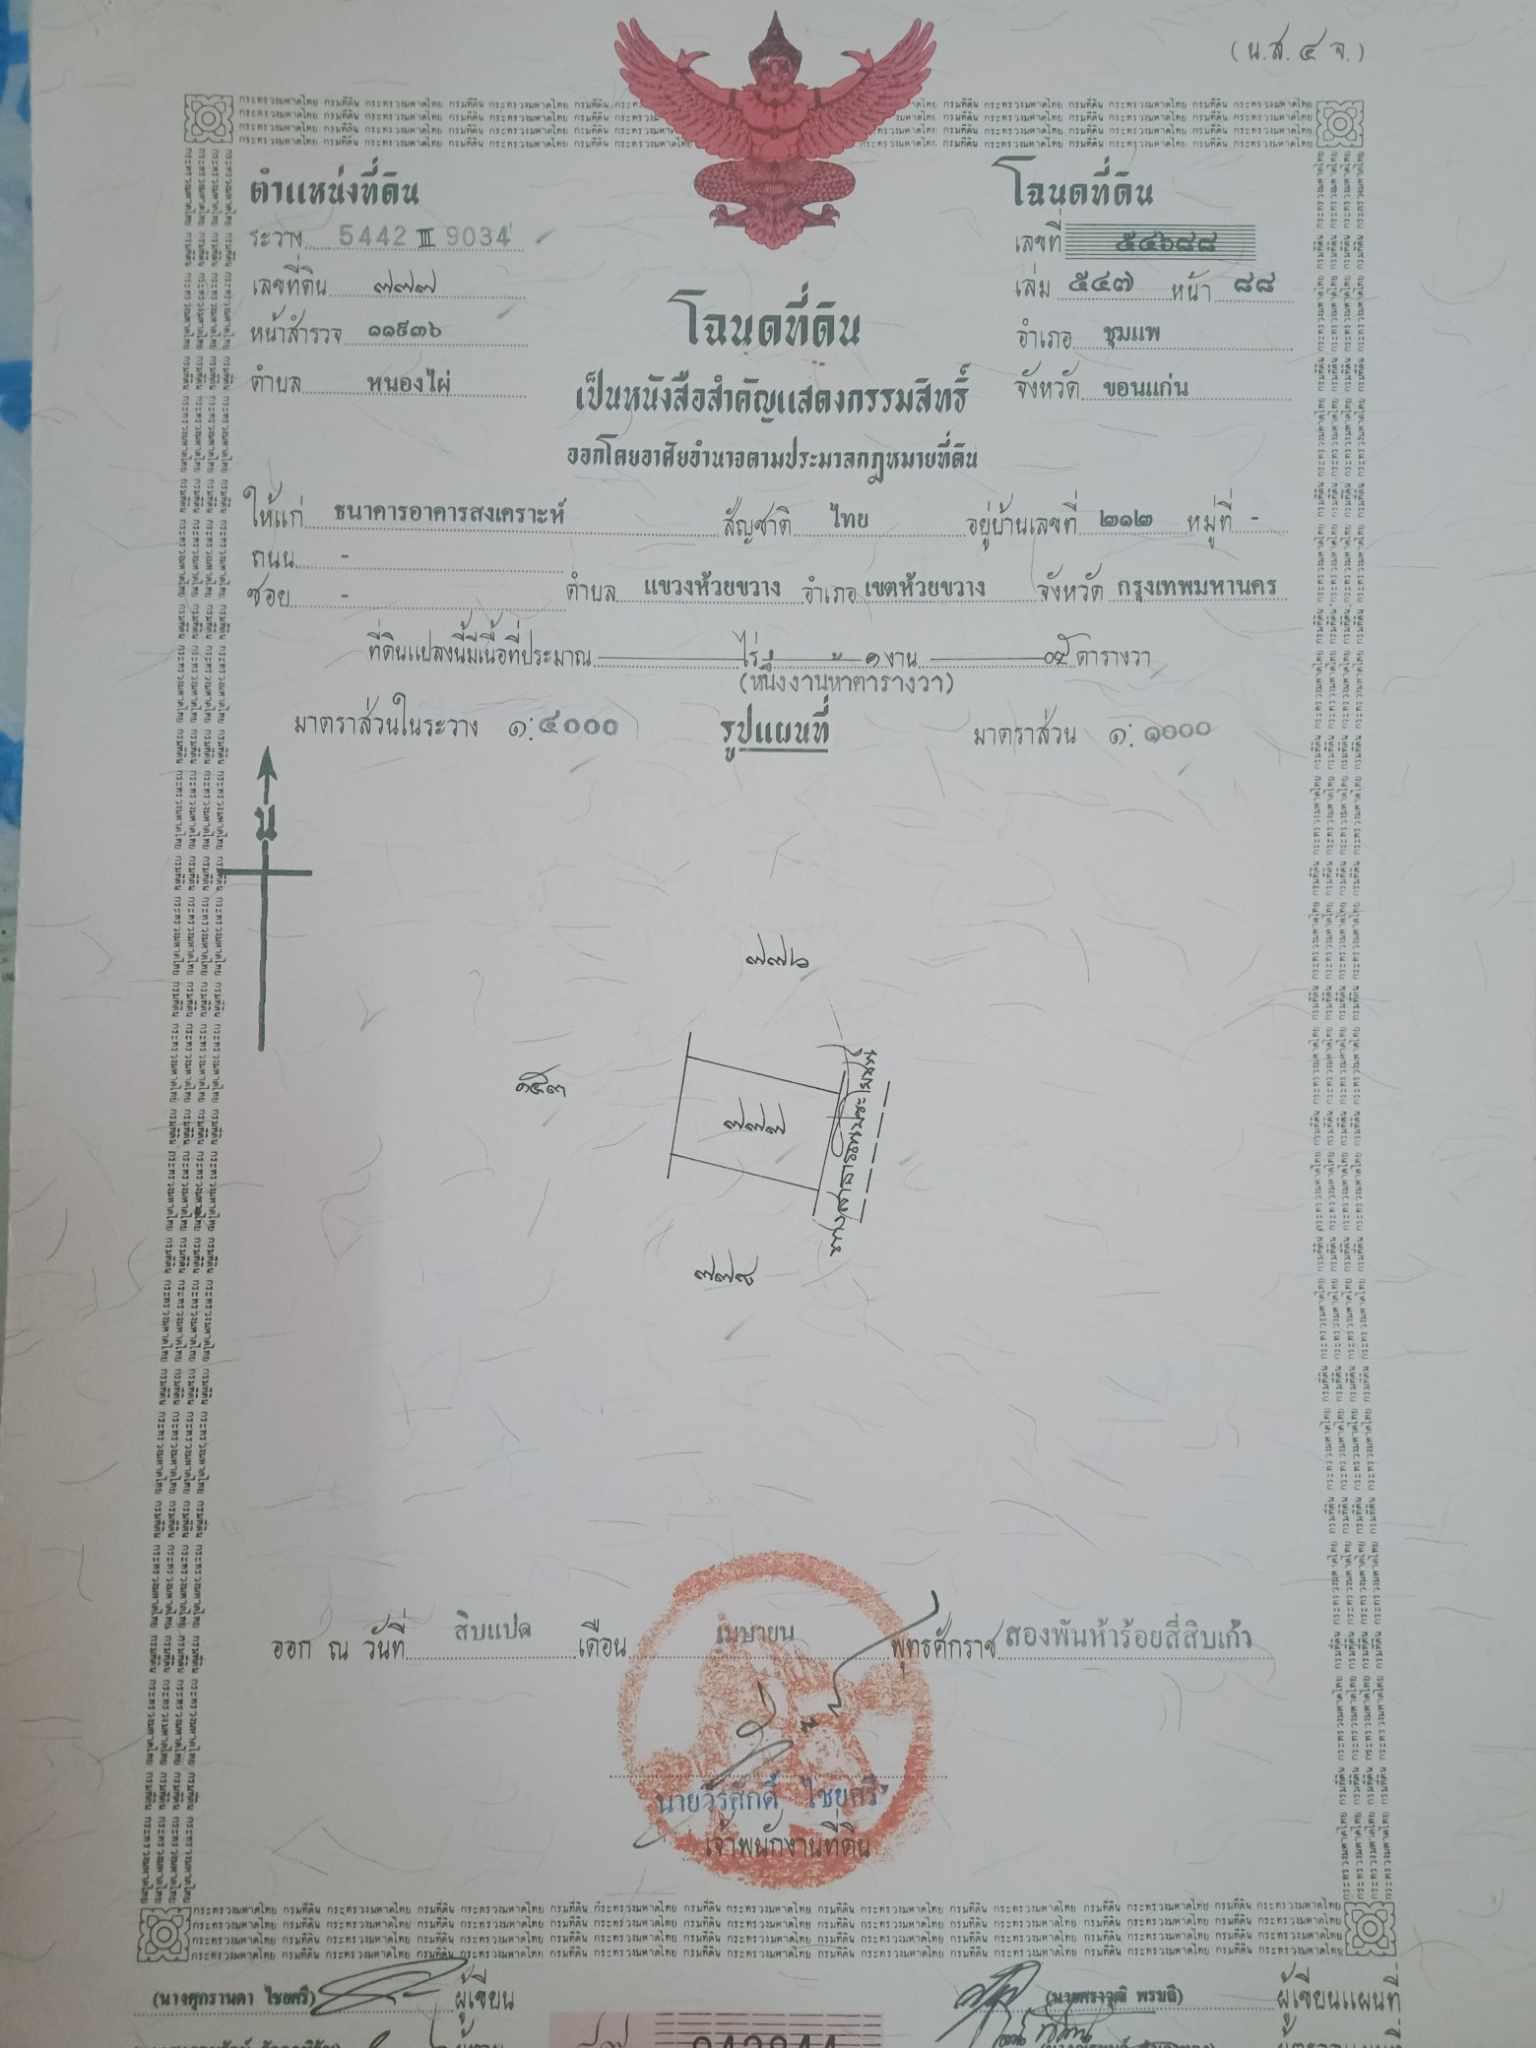 (น.ส. ๔ จ.)
ตำแหน่งที่ดิน
ระวาง 5442 III 9034
เลขที่ดิน ๗๗๗
หน้าสำรวจ ๑๑๙๓๖
ตำบล หนองไผ่
โฉนดที่ดิน
เลขที่ ๕๔๖๘๘
เล่ม ๕๔๗ หน้า ๘๘
อำเภอ ชุมแพ
จังหวัด ขอนแก่น
โฉนดที่ดิน
เป็นหนังสือสำคัญแสดงกรรมสิทธิ์
ออกโดยอาศัยอำนาจตามประมวลกฎหมายที่ดิน
ให้แก่ ธนาคารอาคารสงเคราะห์ สัญชาติ ไทย อยู่บ้านเลขที่ ๒๑๒ หมู่ที่ -
ถนน -
ซอย - ตำบล แขวงห้วยขวาง อำเภอ เขตห้วยขวาง จังหวัด กรุงเทพมหานคร
ที่ดินแปลงนี้มีเนื้อที่ประมาณ ไร่ ๑ งาน ๐๕ ตารางวา
(หนึ่งงานห้าตารางวา)
มาตราส่วนในระวาง ๑:๔๐๐๐ รูปแผนที่ มาตราส่วน ๑:๑๐๐๐
น
๗๗๖
๗๗๗
ทางสาธารณประโยชน์
๗๗๘
ออก ณ วันที่ สิบแปด เดือน เมษายน พุทธศักราช สองพันห้าร้อยสี่สิบเก้า
นายวีรศักดิ์ ไชยศรี
เจ้าพนักงานที่ดิน
กระทรวงมหาดไทย กรมที่ดิน
(นางศุกรานดา ไชยศรี) ผู้เขียน
ผู้เขียนแผนที่